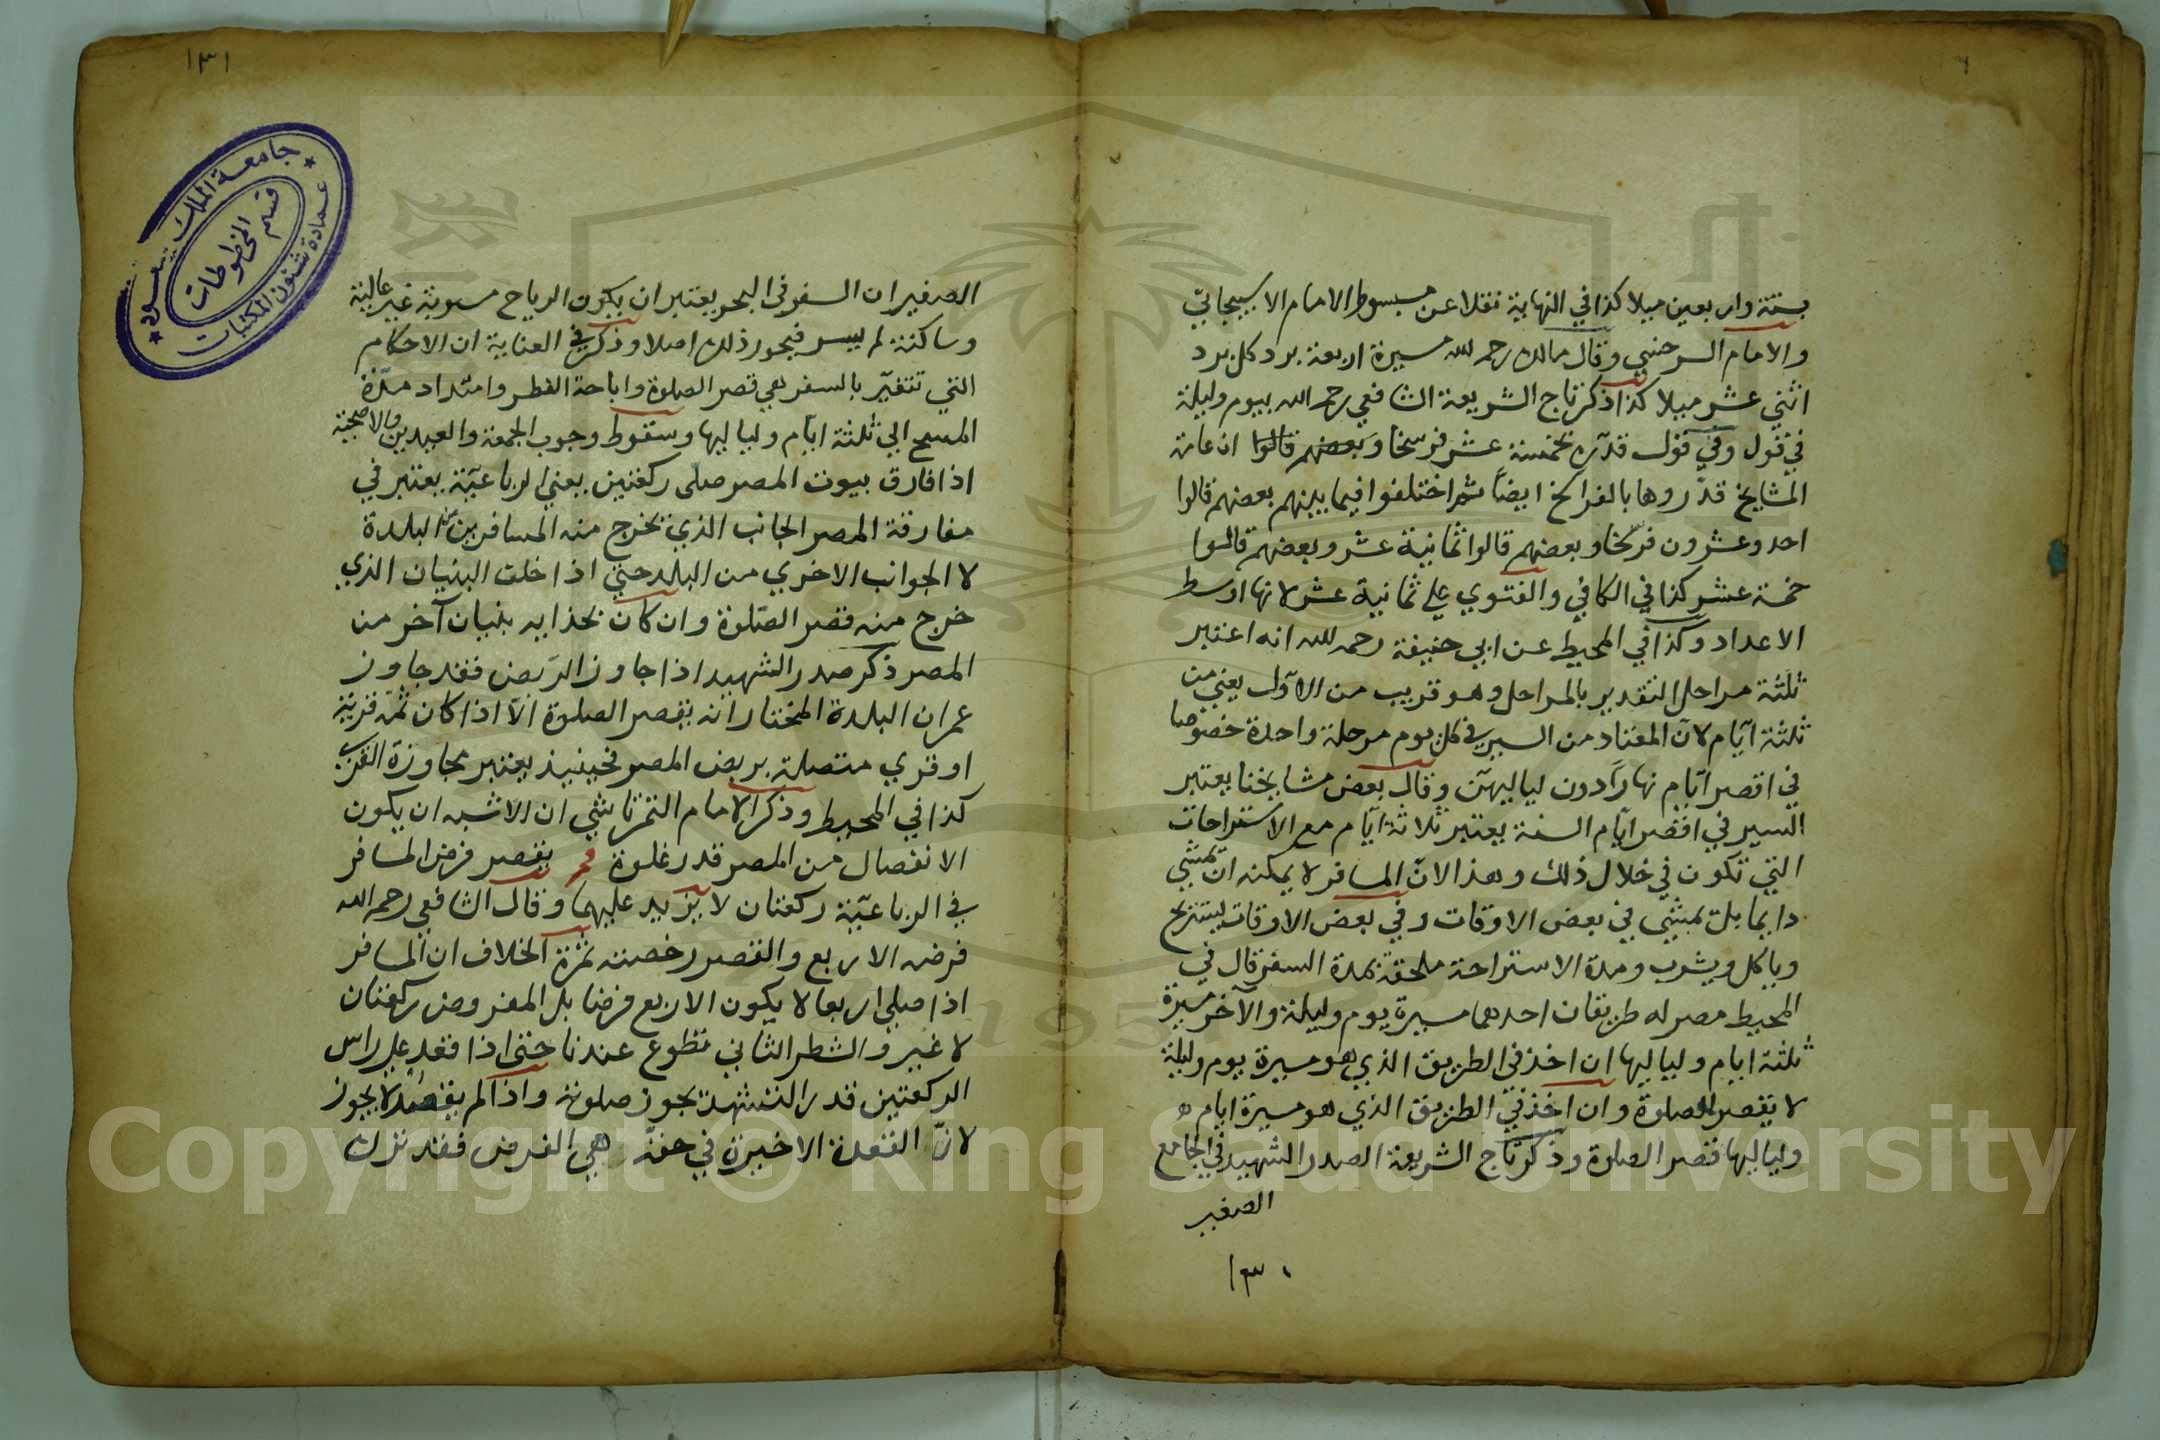 ستة واربعين ميلا كذا في النهاية نقلا عن مبسوط الامام الاسبيجابيّ
والامام السرخسي وقال مالك رحمه لله مسيرة اربعة برد كل برد
اثني عشر ميلا كذا ذكر تاج الشريعة الشافعي رحمه الله بيوم وليلة
في قول وفي قول قدّره بخمسة عشر فرسخا وبعضهم قالوا ان عامة
المشايخ قدّروها بالفراسخ ايضاً ثم اختلفوا فيما بينهم بعضهم قالوا
احد وعشرون فرسخا وبعضهم قالوا ثمانية عشر وبعضهم قالوا
خمسة عشر كذا في الكافي والفتوي علي ثمانية عشر لانها اوسط
الاعداد وكذا في المحيط عن ابي حنيفة رحمه لله انه اعتبر
ثلثة مراحل التقدير بالمراحل وهو قريب من الاول يعني من
ثلثة ايّام لانّ المعتاد من السير في كل يوم مرحلة واحدة خصوصا
في اقصر ايّام نهاراً دون لياليهنّ وقال بعض مشايخنا يعتبر
السير في اقصر ايّام السنة يعتبر ثلاثة ايّام مع الاستراحات
التي تكون في خلال ذلك وهذا لانّ المسافر لا يمكنه ان يمشي
دايما بل يمشي في بعض الاوقات وفي بعض الاوقات يستريح
وياكل ويشرب ومدة الاستراحة ملحقة بمدة السفر قال في
المحيط مصر له طريقان احدهما مسيرة يوم وليلة والآخر مسيرة
ثلثة ايام ولياليها ان اخذ في الطريق الذي هو مسيرة يوم وليلة
لا يقصر الصلوة وان اخذ في الطريق الذي هو مسيرة ايام
ولياليها قصر الصلوة وذكر تاج الشريعة الصدر الشهيد في الجامع
الصغير
١٣٠
١٣١
الصغير ان السفر في البحر يعتبر ان يكون الرياح مسوية غير غالبة
وساكنة لم يسر فيجوز ذلك اصلا وذكر في العناية ان الاحكام
التي تتغيّر بالسفر هي قصر الصلوة واباحة الفطر وامتداد مدّة
المسح الي ثلثة ايّام ولياليها وسقوط وجوب الجمعة والعيدين والاضحية
اذا فارق بيوت المصر صلي ركعتين يعني الرباعيّة يعتبر في
مفارقة المصر الجانب الذي يخرج منه المسافر من البلدة
لا الجوانب الاخري من البلد حتي اذا خلف البنيان الذي
خرج منه قصر الصّلوة وان كان بحذايه بنيان آخر من
المصر ذكر صدر الشهيد اذا جاوز الربض فقد جاوز
عمران البلدة المختار انه يقصر الصلوة الّا اذا كان ثمّة قرية
او قري متصلة بربض المصر فحينيذ يعتبر مجاوزة القري
كذا في المحيط وذكر الامام التمرتاشي ان الاشبه ان يكون
الانفصال من المصر قدر غلوة يقصر فرض المسافر
في الرباعيّة ركعتان لا يزيد عليهما وقال الشافعي رحمه الله
فرضه الاربع والقصر رخصته ثمرة الخلاف ان المسافر
اذا صلي اربعا لا يكون الاربع فرضا بل المفروض ركعتان
لا غير والشطر الثاني تطوع عندنا حتي اذا قعد علي راس
الركعتين قدر التشهد يجوز صلوته واذا لم يقعد لا يجوز
لانّ القعدة الاخيرة في حقه هي الفرض فقد ترك
جامعة الملك سعود
عمادة شئون المكتبات
قسم المخطوطات
Copyright © King Saud University